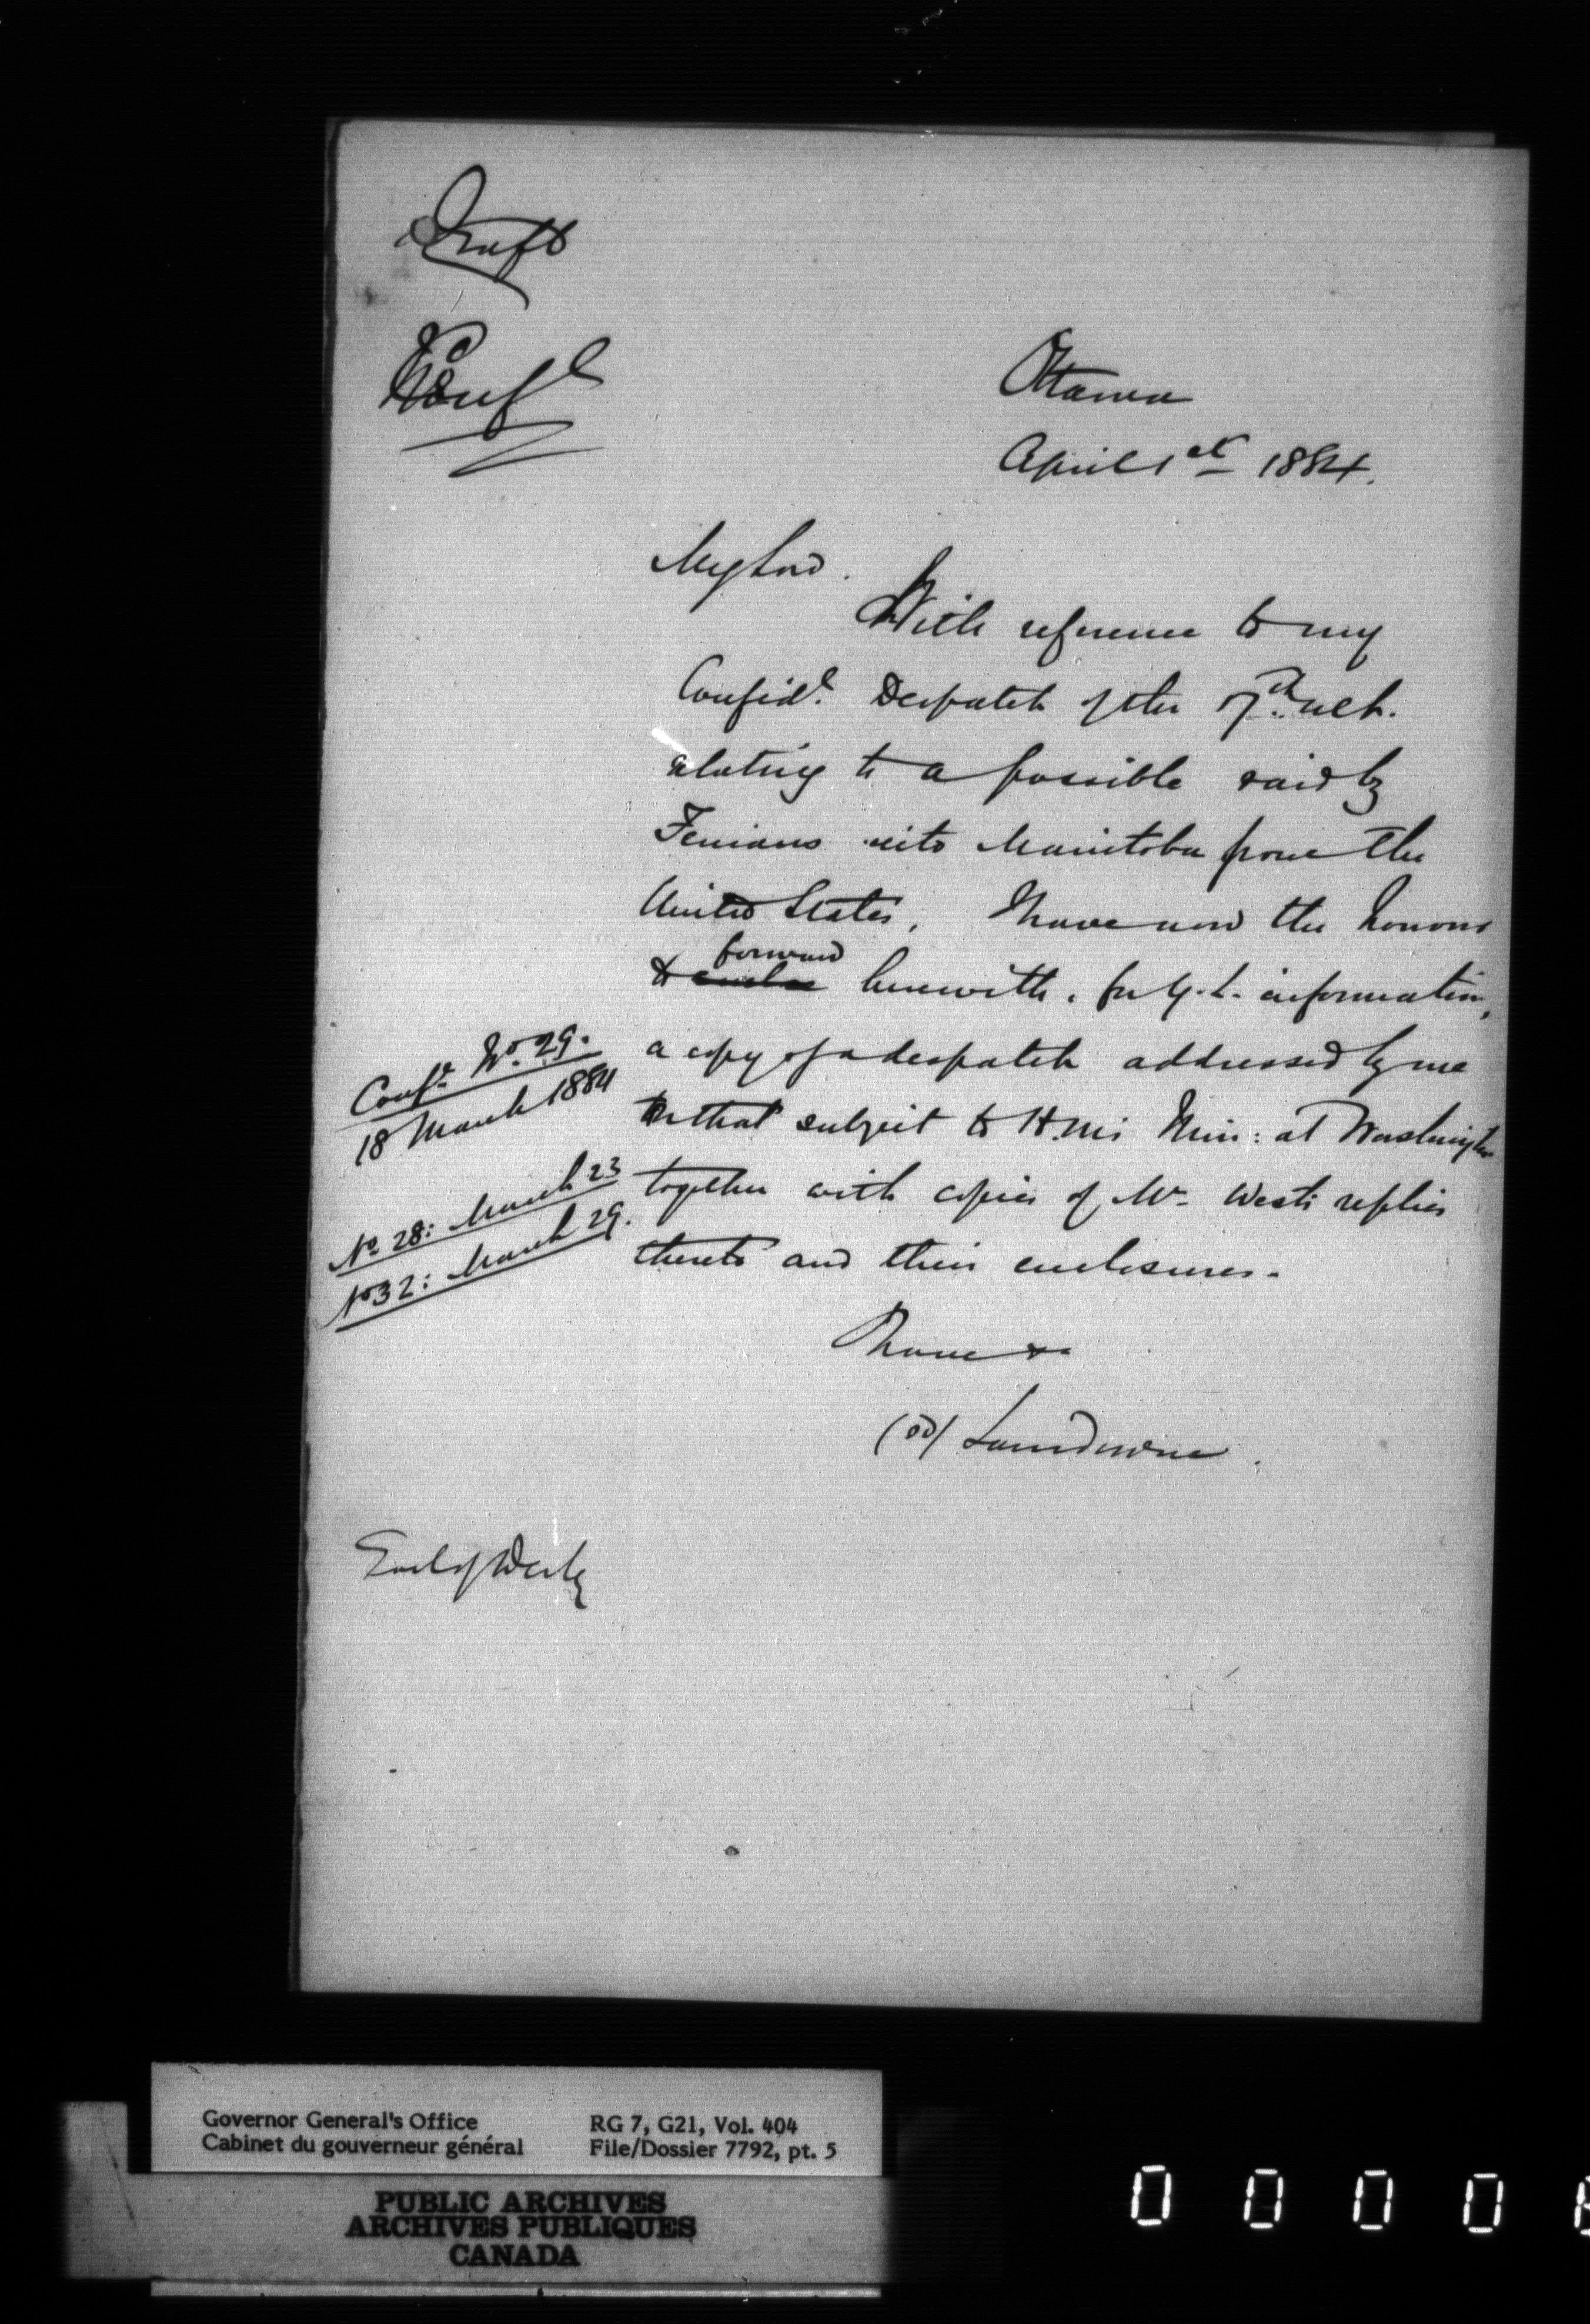 Draft
Confl
Ottawa
April 1st 1884.
My Lord.
With reference to my
Confidl. Despatch of the 7th. ult.
relating to a possible raid by
Fenians into Manitoba from the
United States, I have now the honour
forward
to enclose herewith, for Y.L. information,
a copy of a despatch addressed by me
on that subject to H.M's Min: at Washington
together with copies of Mr. West's replies
thereto and their enclosures.
Conft. No. 29.
18 March 1884
No 28: March 23
No 32: March 29.
I have &c
(sd) Lansdowne.
Earl of Derby
Governor General's Office
Cabinet du gouverneur général
RG 7, G21, Vol. 404
File/Dossier 7792, pt. 5
PUBLIC ARCHIVES
ARCHIVES PUBLIQUES
CANADA
0 0 0 0